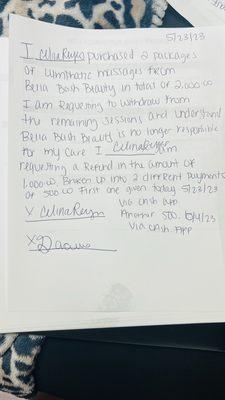 5/23/23
I Celina Reyes purchased 2 packages
of Lumihatic massages from
Bella Bash Beauty in total of 2,000.00
I am Requesting to withdraw from
the remaining sessions and understand
Bella Bash Beauty is no longer responsible
for my care I Celina Reyes am
requesting a Refund in the amount of
1,000.00, Broken up into 2 different payments
of 500.00 First one given today 5/23/23
via cash app.
X Celina Reyes
Another 500. 6/4/23
via cash. App
X